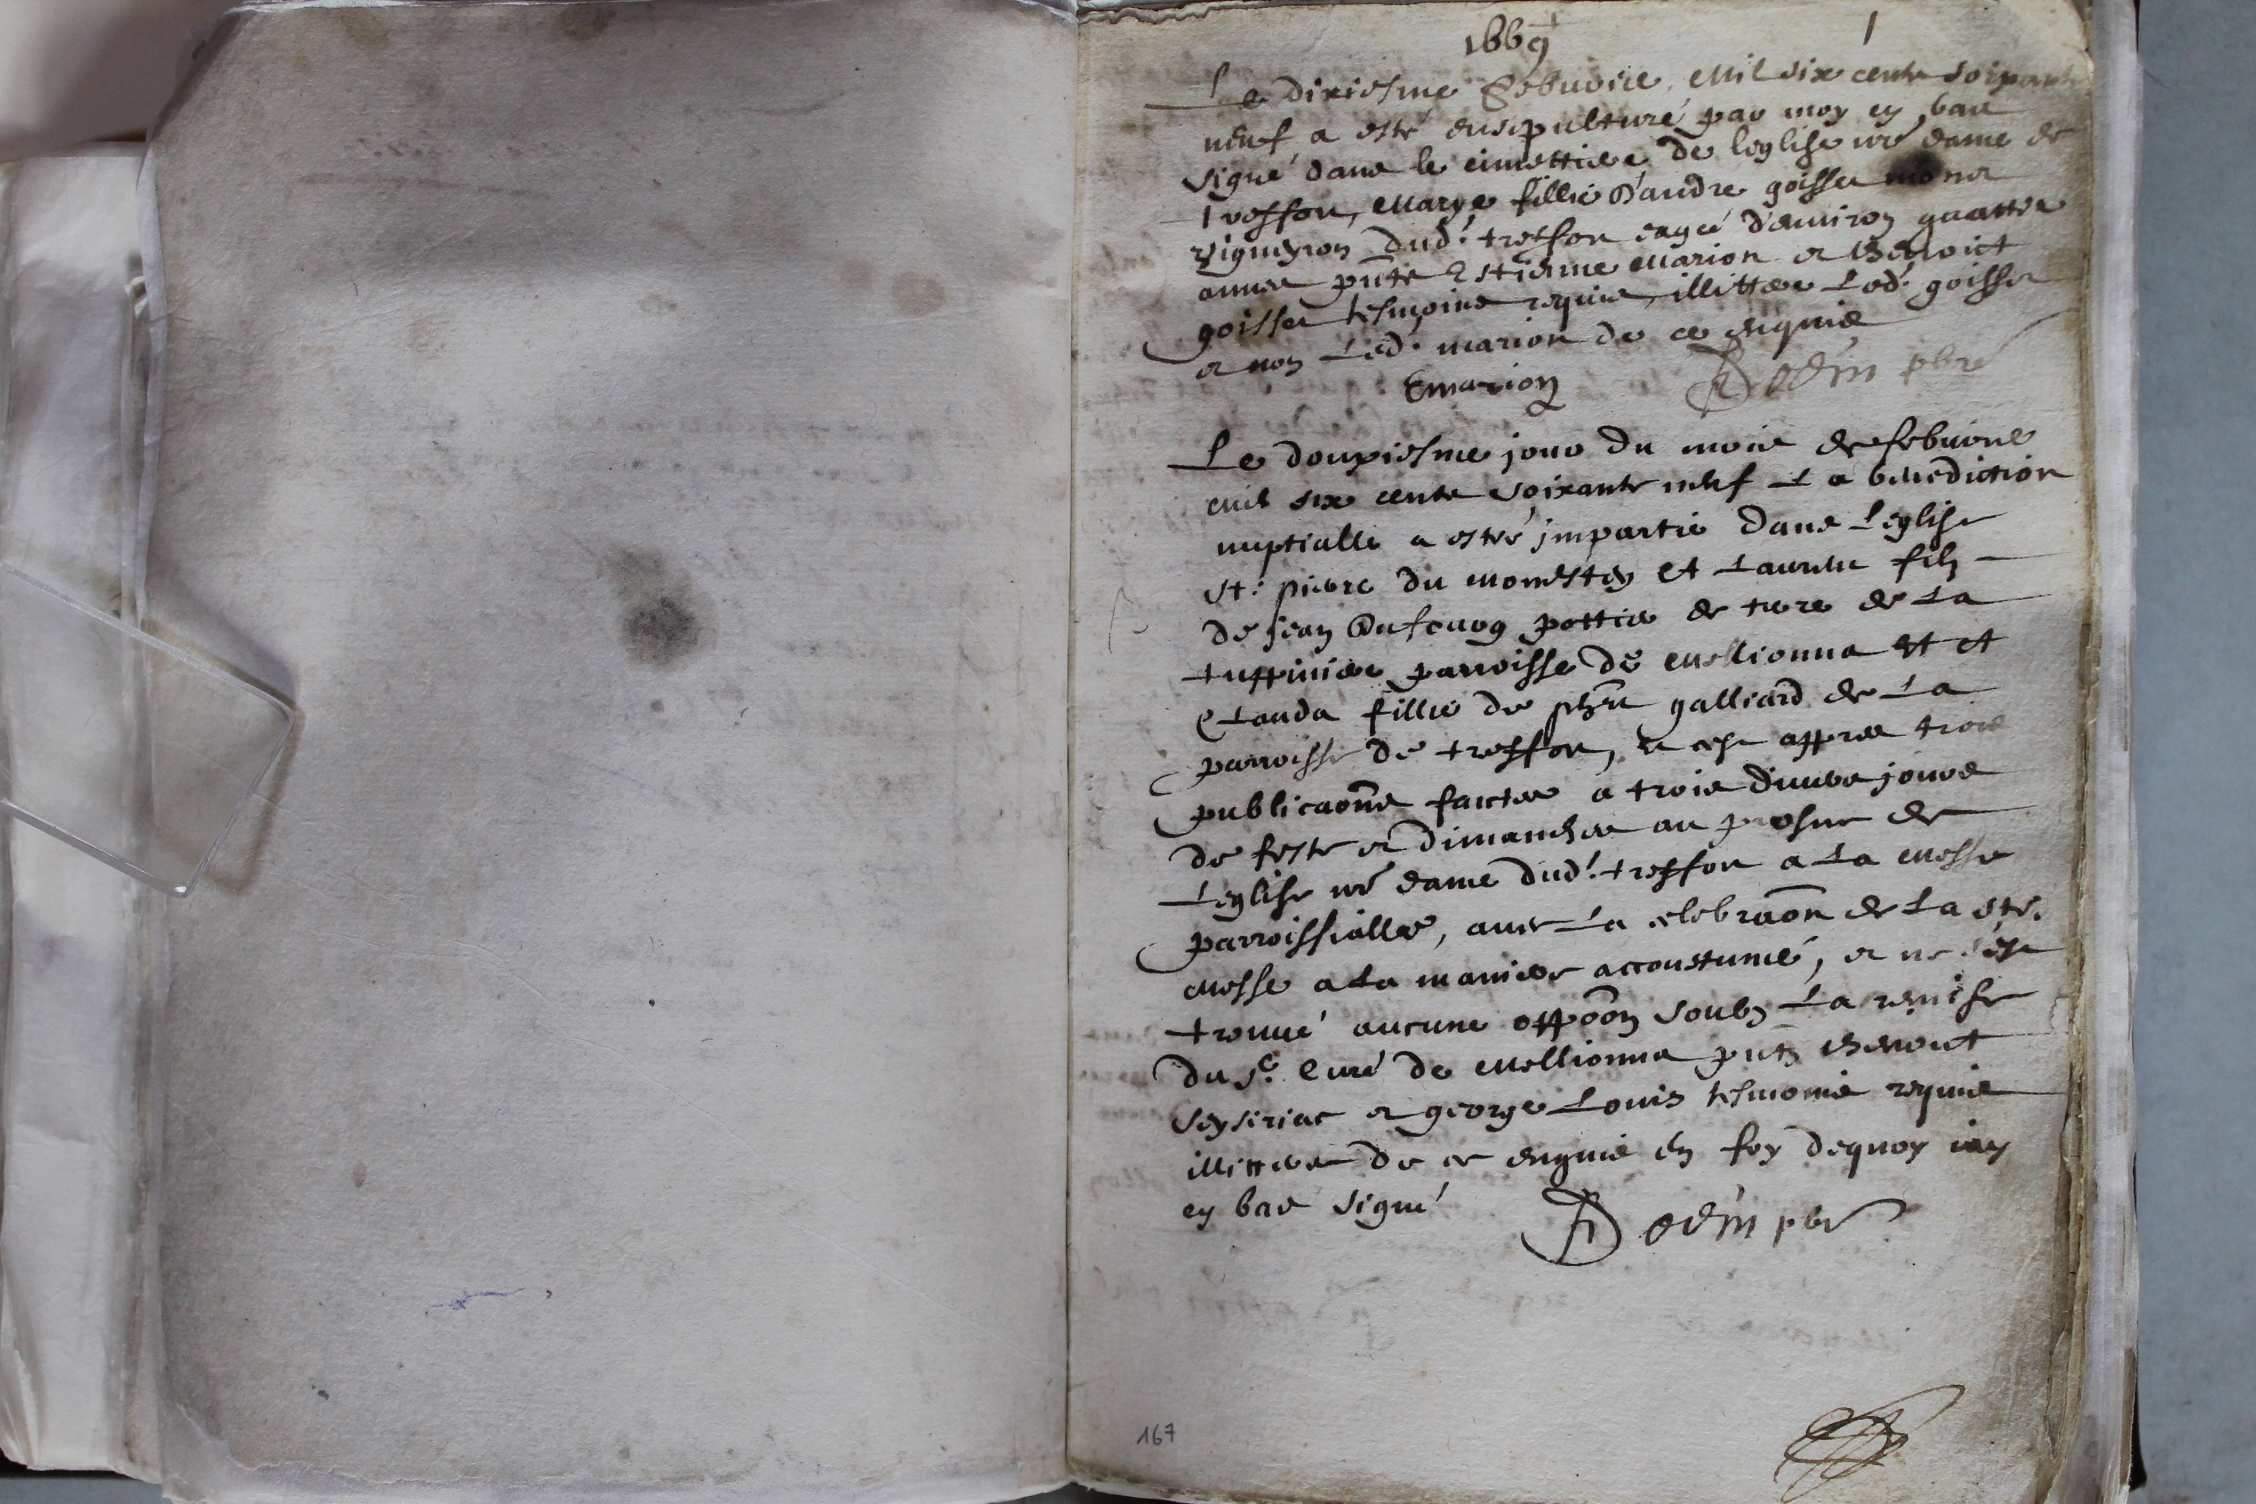 1669
1
Le dixiesme Febvrier, Mil six cents soixante
neuf a esté ensepulturé par moy en bas
signé dans le cimettiere de leglise nre dame de
treffort, Marye fillie d'andre goisset
vigneron dud. treffort eagé d'environ quattre
annes pnts Estienne Marion et Benoict
goisset tesmoins requis, illittere Led. goisset
et non Led. marion de ce enquis
E marion
Dodin pbre
Le douxiesme jour du mois de febvrier
Mil six cents soixante neuf La benediction
nuptialle a esté impartie dans Leglise
St. pierre du Monestey Et Laurent filz
de Jean pottier de terre de La
tuppiniere parroisse de Mellionna Et et
Clauda fillie de galliard de La
parroisse de treffort, et cest appres trois
publicaons faictes a trois divers jours
de feste et dimanches au prosne de
Leglise nre dame dud. treffort a La Messe
parroissialle, avec La celebraon de La ste.
Messe a La maniere accoustumé, et ne s'est
trouvé aucune oppoon soubz La remise
du sr. Curé de Mellionna pnts Benoict
Seysiriac et george Louis tesmoins requis
illitteres de ce enquis en foy dequoy iay
en bas signé
Dodin pbr
167